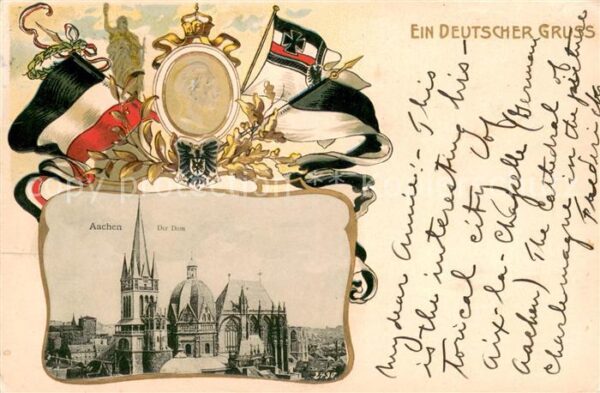 EIN DEUTSCHER GRUSS
Aachen Der Dom
2730
My dear Annie:- This
is the interesting his-
torical city of
Aix-la-Chapelle (German
Aachen) The cathedral of
Charlemagne in the picture